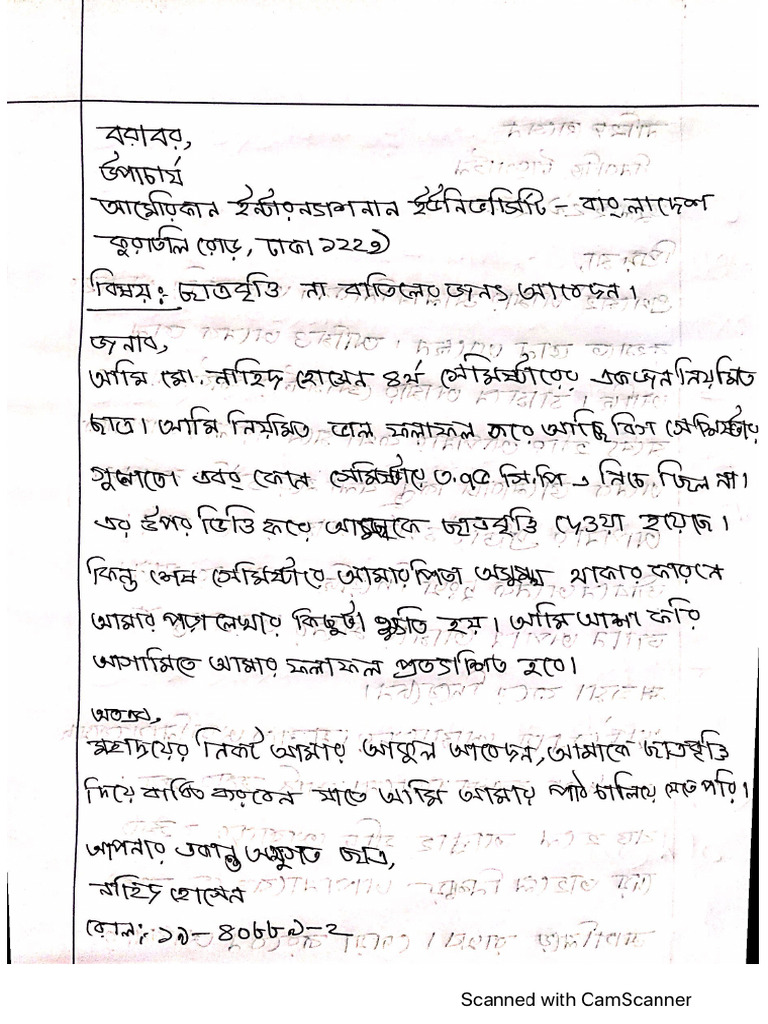 বরাবর,
উপাচার্য
আমেরিকান ইন্টারন্যাশনাল ইউনিভার্সিটি - বাংলাদেশ
কুরাতলি রোড, ঢাকা ১২২৯
বিষয়: ছাত্রবৃত্তি না বাতিলের জন্য আবেদন।
জনাব,
আমি মো. নাহিদ হোসেন ৪র্থ সেমিস্টারের একজন নিয়মিত
ছাত্র। আমি নিয়মিত ভাল ফলাফল করে আছি বিগত সেমিস্টার
গুলোতে। এবং কোন সেমিস্টারে ৩.৭৫ সি.পি এ নিচে ছিল না।
এর উপর ভিত্তি করে আমাকে ছাত্রবৃত্তি দেওয়া হয়েছে।
কিন্তু শেষ সেমিস্টারে আমার পিতা অসুস্থ থাকার কারনে
আমার পড়া লেখার কিছুটা ক্ষতি হয়। আমি আশা করি
আগামিতে আমার ফলাফল প্রত্যাশিত হবে।
অতএব,
মহোদয়ের নিকট আমার আকুল আবেদন, আমাকে ছাত্রবৃত্তি
দিয়ে বাধিত করবেন যাতে আমি আমার পাঠ চালিয়ে যেতে পারি।
আপনার একান্ত অনুগত ছাত্র,
নাহিদ হোসেন
রোল: ১৯-৪০৮৮৯-২
Scanned with CamScanner